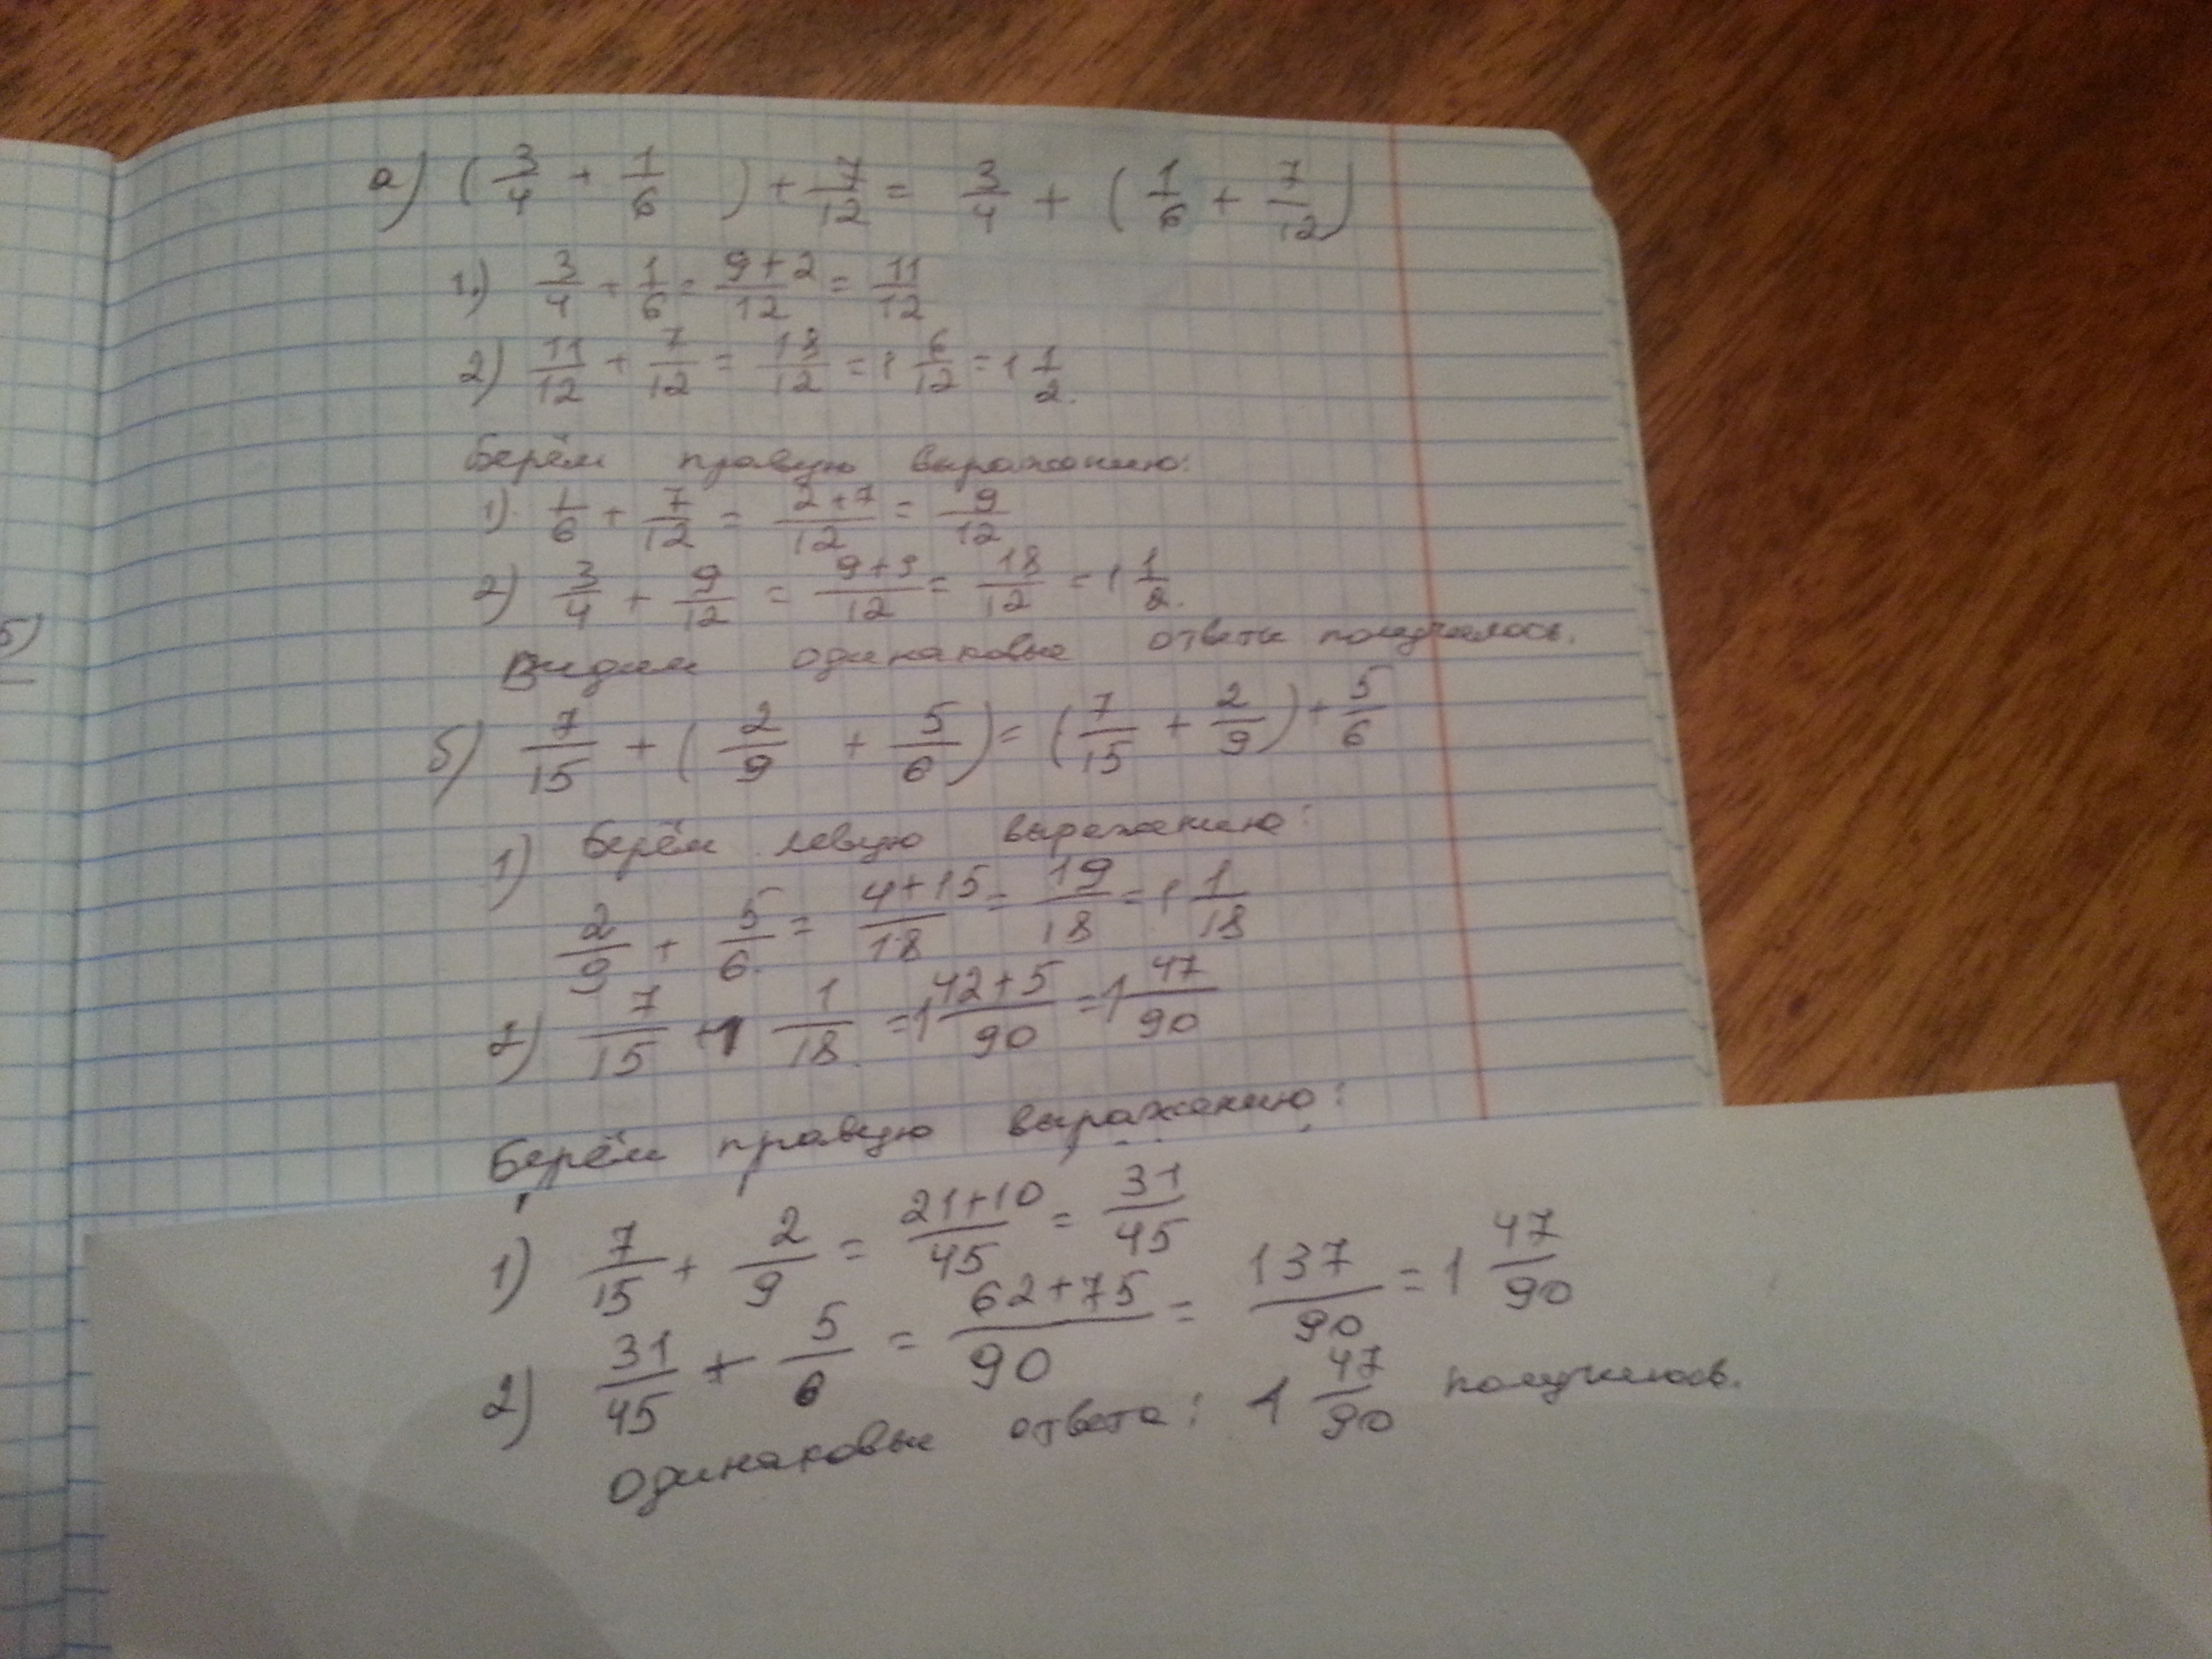 а) (3/4 + 1/6) + 7/12 = 3/4 + (1/6 + 7/12)
1.) 3/4 + 1/6 = 9+2/12 = 11/12
2) 11/12 + 7/12 = 18/12 = 1 6/12 = 1 1/2.
Берём правую выражению:
1) 1/6 + 7/12 = 2+7/12 = 9/12
2) 3/4 + 9/12 = 9+9/12 = 18/12 = 1 1/2.
Видим одинаковые ответы получилось.
5)
б) 7/15 + (2/9 + 5/6) = (7/15 + 2/9) + 5/6
1) Берём левую выражению:
2/9 + 5/6 = 4+15/18 = 19/18 = 1 1/18
2) 7/15 + 1 1/18 = 1 42+5/90 = 1 47/90
Берём правую выражению:
1) 7/15 + 2/9 = 21+10/45 = 31/45
2) 31/45 + 5/6 = 62+75/90 = 137/90 = 1 47/90
Одинаковые ответы: 1 47/90 получилось.